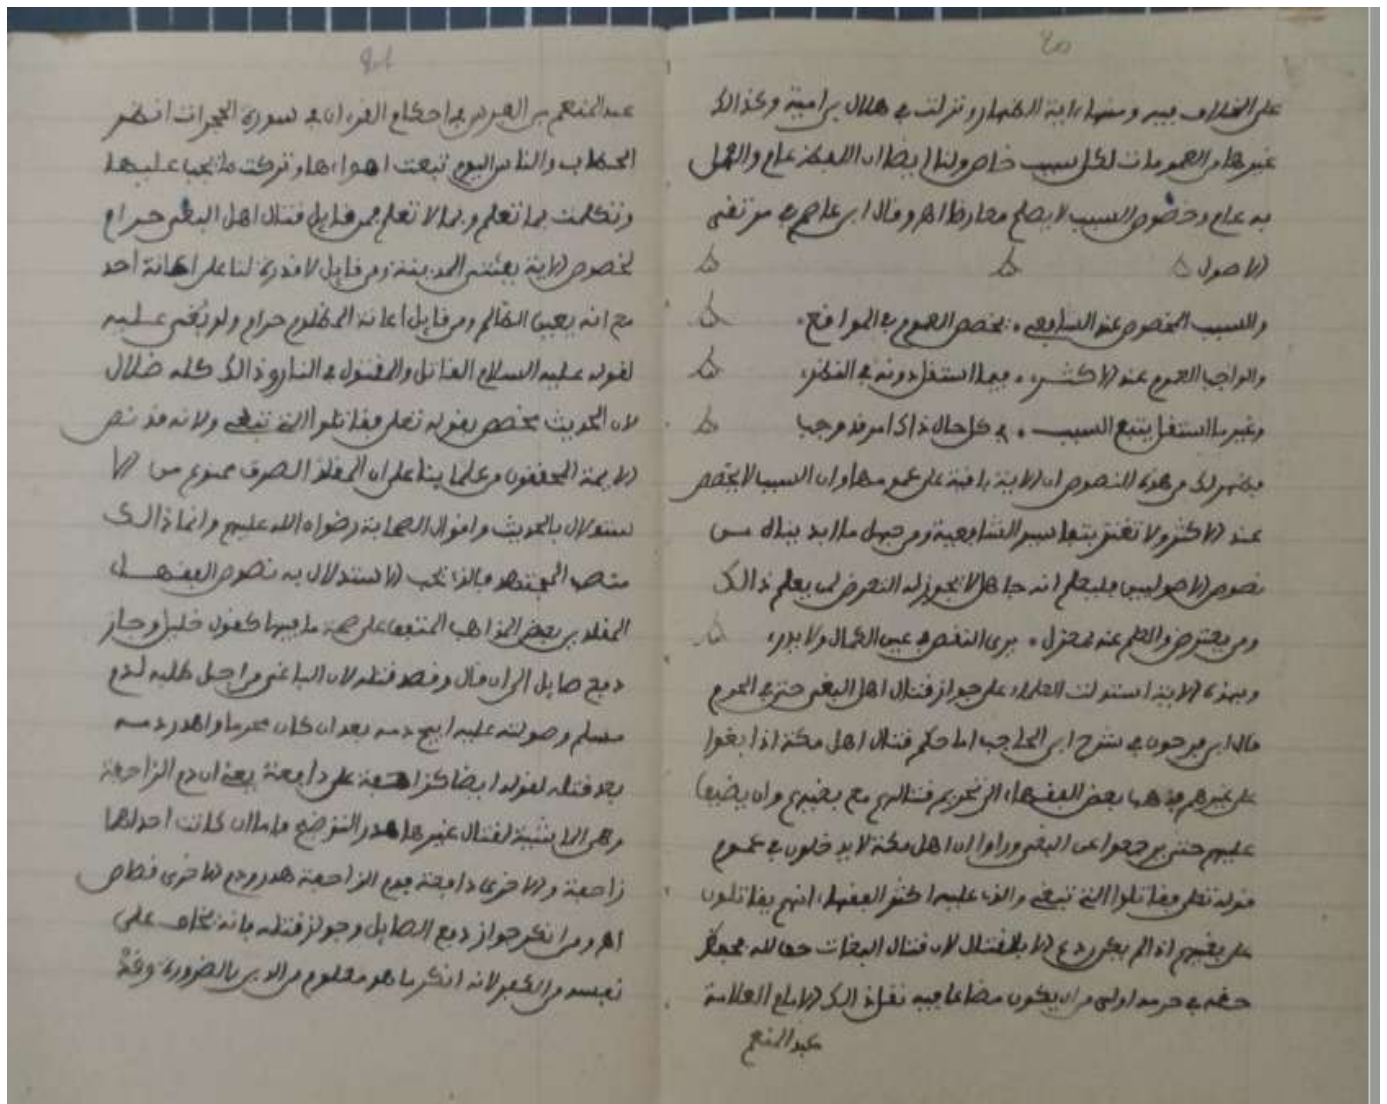 على الخلاف فيه ومنها ءاية الظهار ونزلت في هلال بن امية وكذالك
غيرها من العمومات لكل سبب خاص ولنا ايضا ان اللفظ عام والعمل
به عام وخصوص السبب لا يصلح معارضا اهـ وقال ابن عاصم في مرتقى
الاصول
والسبب المخصوص عند الشافعي * يخصص العموم في المواقع *
والواجب العموم عند الاكثر * فيما استقل دونه في النظر *
وغير ما استقل يتبع السبب * في كل حال ذاك امر قد وجبا
فيظهر لك من هذه النصوص ان الاية باقية على عمومها وان السبب لا يخصص
عند الاكثر ولا تغتر بتفاسير الشافعية ومن جهل ما لابد بناه من
نصوص الاصوليين فليعلم انه جاهل لا يجوز له التعرض لمن يعلم ذالك
ومن يعترض والعلم عنه بمعزل * يرى النقص في عين الكمال ولا يدر *
وبهذه الاية استدلت العلماء على جواز قتال اهل البغي حتى في الحرم
قال ابن فرحون في شرح ابن الحاجب اما حكم قتال اهل مكة اذا بغوا
على غيرهم فذهب بعض الفقهاء الى تحريم قتالهم مع بغيهم وان يضيق
عليهم حتى يرجعوا عن البغي وراوا ان اهل مكة لا يدخلون في عموم
قوله تعلى فقاتلوا التي تبغي والذي عليه اكثر الفقهاء انهم يقاتلون
على بغيهم اذا لم يمكن ردهم الا بالقتال لان قتال البغات حق لله فحفظ
حقه في حرمه اولى من ان يكون مضاعا فيه نقل ذالك الامام العلامة
عبد المنعم
عبد المنعم بن الفرس في احكام القرءان في سورة الحجرات انظر
الحطاب والناس اليوم تبعت اهواءها وتركت ما يجب عليها
وتكلمت بما تعلم وبما لا تعلم فمن قايل قتال اهل البغي حرام
لخصوص الاية بفئته المدينة ومن قايل لا قدرة لنا على اهانة احد
مع انه يعين الظالم ومن قايل اعانة المظلوم حرام ولو بُغي عليه
لقوله عليه السلام القاتل والمقتول في النار وذالك كله ضلال
لان الحديث مخصص بقوله تعلى فقاتلوا التي تبغي ولانه قد نص
الايمة المحققون من علماينا على ان المقلد الصرف ممنوع من الا
ستدلال بالحديث واقوال الصحابة رضوان الله عليهم وانما ذالك
منصب المجتهد فالذي يجب الاستدلال به نصوص الفقهاء
المقلدين بعض المذاهب المتفق على صحة ما فيها كقول خليل وجاز
دفع صايل الى ان قال وقصد قتله لان الباغي من اجل طلبه لدم
مسلم وصولته عليه ابيح دمه بعد ان كان محرما واهدر دمه
بعد قتله لقوله ايضا كزاحفة على دافعة يعني ان دم الزاحفة
وهي الماشية لقتال غيرها هدر التوضيح واما ان كانت احداهما
زاحفة والاخرى دافعة فدم الزاحفة هدر ودم الاخرى قصاص
اهـ ومن انكر جواز دفع الصايل وجواز قتله فانه يخاف على
نفسه من الكفر لانه انكر ما هو معلوم من الدين بالضرورة وقد